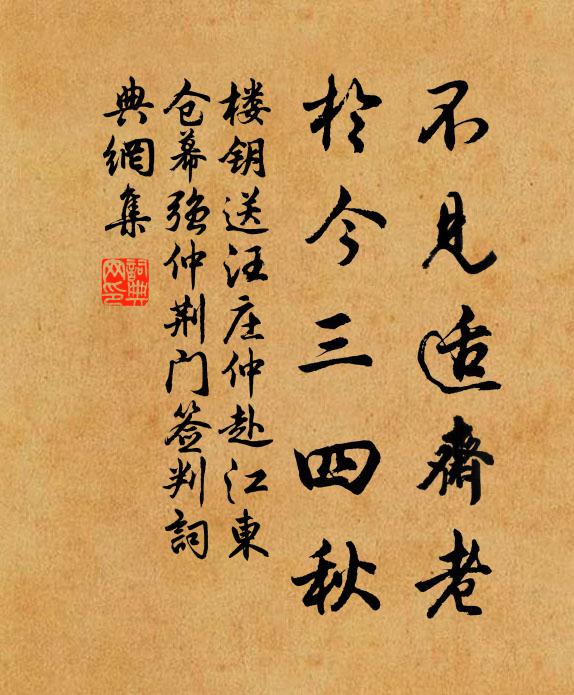 不见适斋老
於今三四秋
楼钥送汪庄仲赴江東
仓幕强仲荆门签判詞
典網集
詞典网印